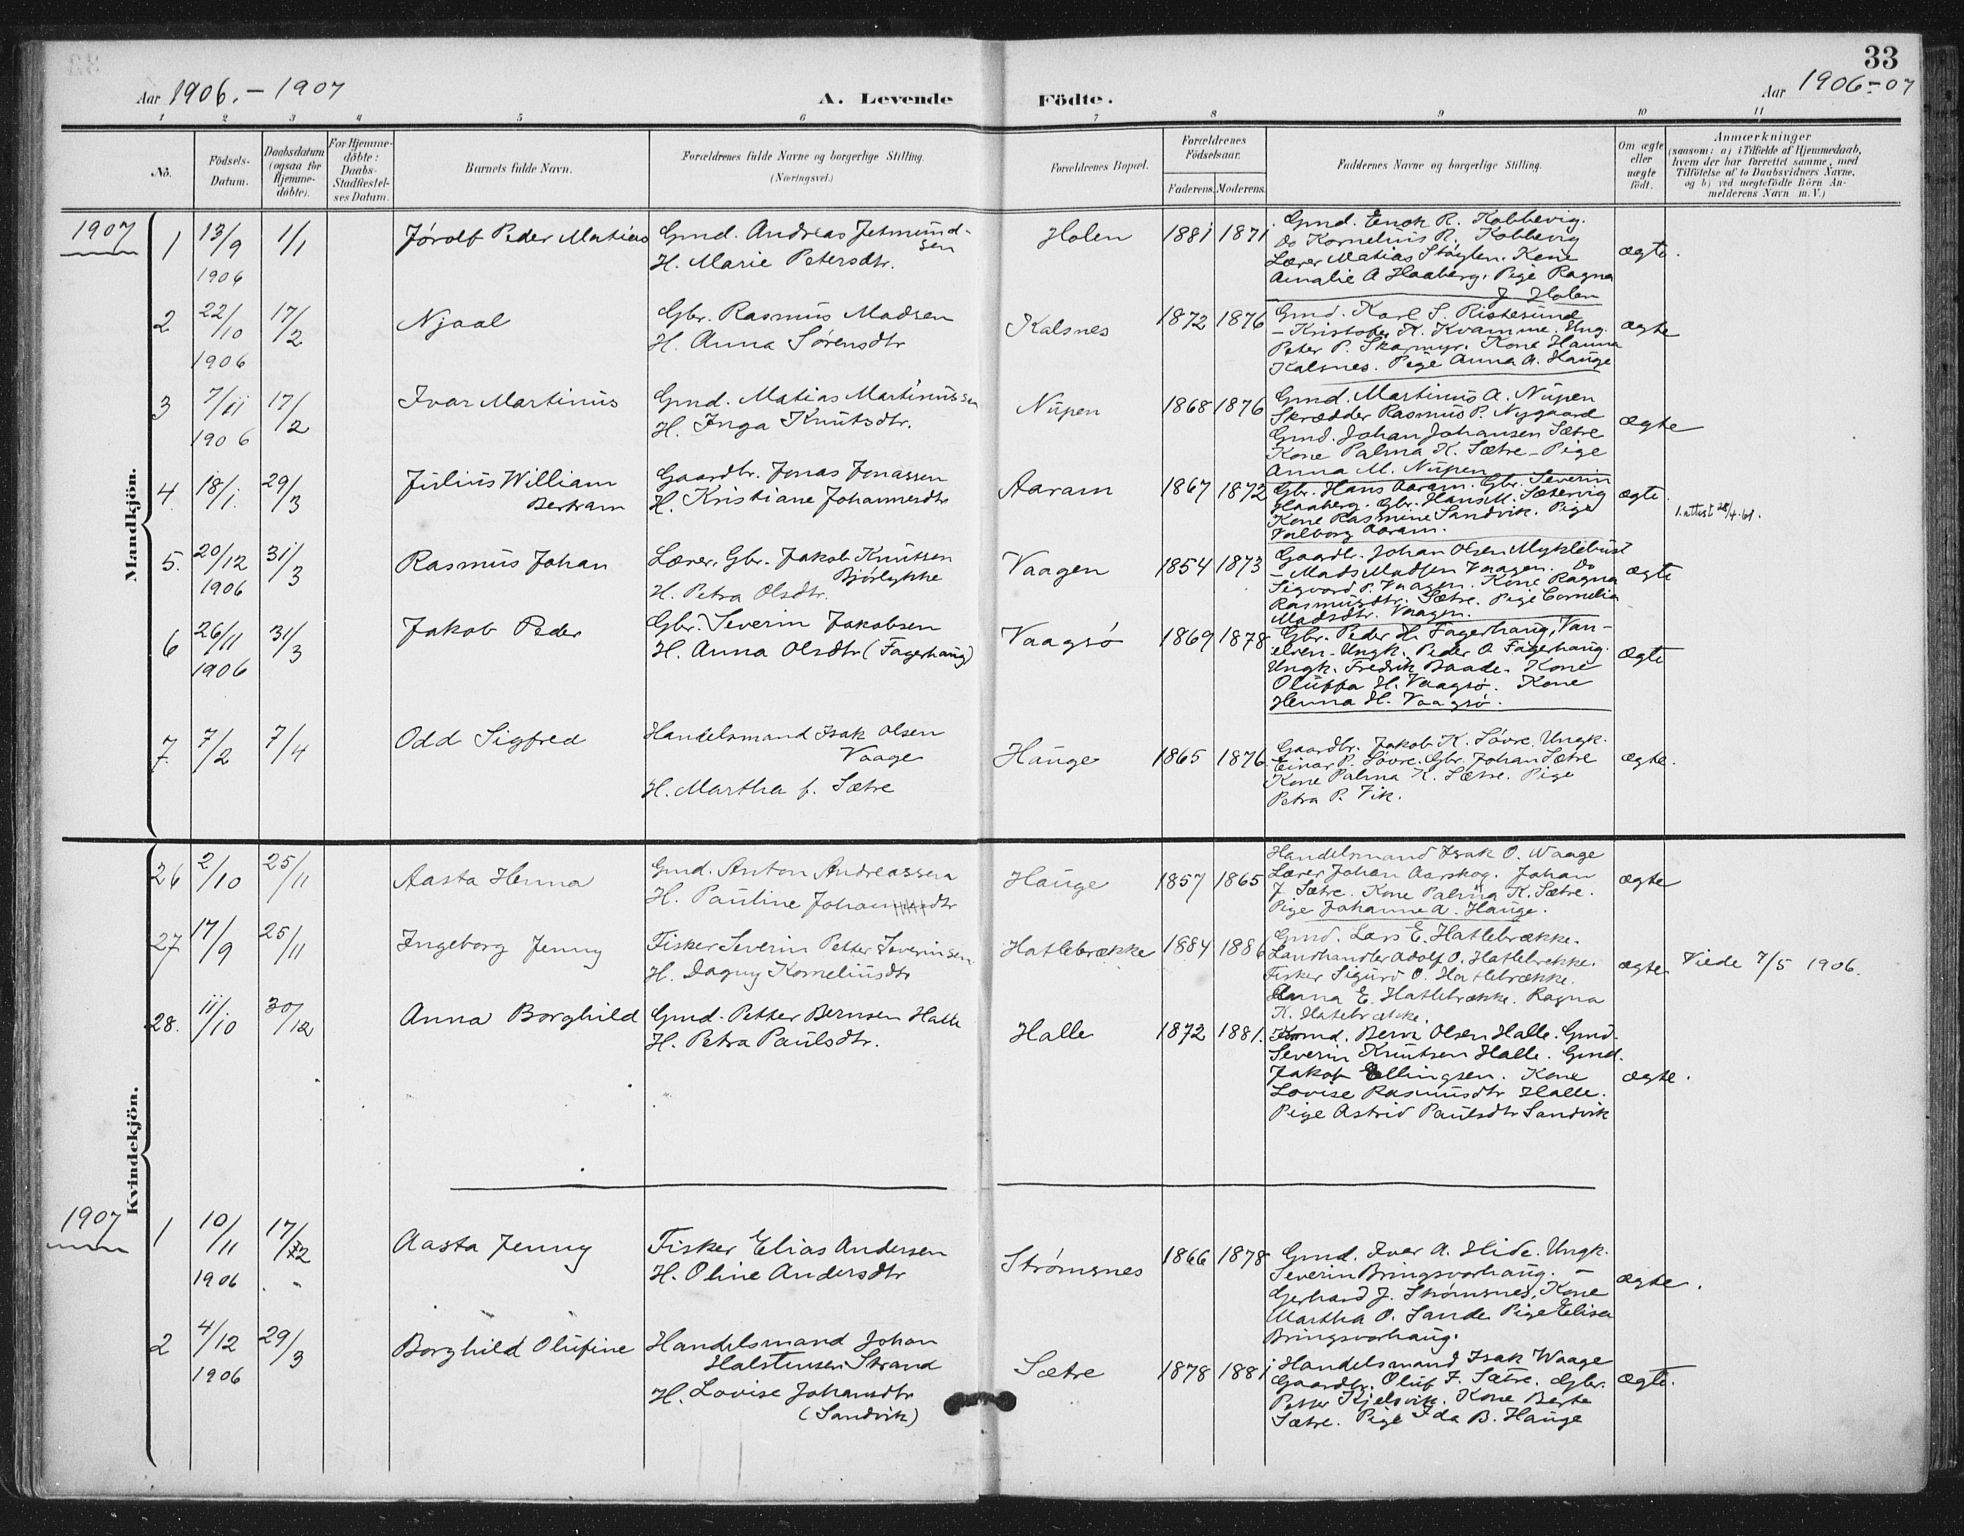 33
Aar 1906. - 1907
A. Levende Födte.
Aar 1906-07
1 2 3 4 5 6 7 8 9 10 11
No.
Födsels-
Datum.
Daabsdatum
(ogsaa for
Hjemme-
döbte).
For Hjemme-
döbte:
Daabs-
Stadfæstel-
ses Datum.
Barnets fulde Navn.
Forældrenes fulde Navne og borgerlige Stilling.
(Næringsvei.)
Forældrenes Bopæl.
Forældrenes
Födselsaar.
Faderens. Moderens.
Faddernes Navne og borgerlige Stilling.
Om ægte
eller
uægte
födt.
Anmærkninger
(saasom: a) i Tilfælde af Hjemmedaab,
hvem der har forrettet samme, med
Tilföielse af to Daabsvidners Navne,
og b) ved uegtefödte Börn An-
melderens Navn m. V.)
Mandkjön.
1907
1 13/9 1906 1/1 Jørolf Peder Matias
Gmd. Andreas Jetmund-
sen
H. Marie Petersdtr.
Holen 1881 1871
Gmd. Enok R. Kobbevig.
Do Kornelius R. Kobbevig
Lærer Matias Støylen. Kone
Amalie A Haaberg. Pige Ragna
J. Holen
ægte.
2 22/10 1906 17/2 Njaal
Gbr. Rasmus Madsen
H. Anna Sørensdtr
Kalsnes 1872 1876
Gmd. Karl S. Ristesund
- Kristofer K. Kvamme. Ung.
Peter P. Skarmyr. Kone Hanna
Kalsnes. Pige Anna A. Hauge
ægte
3 7/11 1906 17/2 Ivar Martinus
Gmd. Matias Martinussen
H. Inga Knutsdtr.
Nupen 1868 1876
Gmd. Martinus A. Nupen
Skrædder Rasmus P. Nygaard
Gmd. Johan Johansen Sætre
Kone Palma K. Sætre - Pige
Anna M. Nupen
ægte
4. 18/1. 29/3 Julius William
Bertram
Gaardbr. Jonas Jonassen
H. Kristiane Johannesdtr
Aaram 1867 1872
Gbr. Hans Aaram. Gbr. Severin
Haaberg. Gbr. Hans M. Sætervig
Kone Rasmine Sandvik. Pige
Valborg Aaram.
ægte.
1. attest 28/4.61.
5. 20/12 1906 31/3 Rasmus Johan
Lærer. Gbr. Jakob Knutsen
Bjørlykke
H. Petra Olsdtr.
Vaagen 1854 1873
Gaardbr. Johan Olsen Myklebust
- Mads Madsen Vaagen. Do
Sigvard P. Vaagen. Kone Ragna
Rasmusdtr. Sætre. Pige Cornelia
Madsdtr. Vaagen.
ægte
6 26/11 1906 31/3 Jakob Peder
Gbr. Severin Jakobsen
H. Anna Olsdtr (Fagerhaug)
Vaagsø 1869 1878
Gbr. Peder H. Fagerhaug, Van-
elven. Ungk. Peder O. Fagerhaug.
Ungk. Fredrik Baade. Kone
Oluffa H. Vaagsø. Kone
Henna H. Vaagsø.
ægte
7. 7/2 7/4 Odd Sigfred
Handelsmand Isak Olsen
Vaage
H. Martha f. Sætre
Hauge 1865 1876
Gaardbr. Jakob K. Søvre. Ungk.
Einar P. Søvre. Gbr. Johan Sætre
Kone Palma K. Sætre. Pige
Petra P. Vik.
ægte.
Kvindekjön.
26 2/10 25/11 Aasta Henna
Gmd. Anton Andreassen
H. Pauline Johansdtr
Hauge 1857 1865
Handelsmand Isak O. Waage
Lærer Johan Aarskog. Johan
J. Sætre. Kone Palma K. Sætre.
Pige Johanne A. Hauge.
ægte
27 17/9 25/11 Ingeborg Jenny
Fisker Severin Petter Severinsen
H. Dagny Korneliusdtr
Hatlebrække 1884 1886
Gmd. Lars E. Hatlebrække.
Landhandler Adolf O. Hatlebrekke.
Fisker Sigurd O. Hatlebrække.
Anna E. Hatlebrække. Ragna
K. Hatebrække.
ægte
Viede 7/5 1906.
28. 11/10 30/12 Anna Borghild
Gmd. Petter Bernsen Halle
H. Petra Paulsdtr.
Halle 1872 1881.
Gmd. Bernt Olsen Halle. Gmd.
Severin Knutsen Halle. Gmd.
Jakob Ellingsen. Kone
Lovise Rasmusdtr Halle.
Pige Astrid Paulsdtr Sandvik
ægte.
1907
1 10/11 1906 17/2 Aasta Jenny
Fisker Elias Andersen
H. Oline Andersdtr
Strømsnes 1866 1878
Gmd. Ivar A. Hide. Ungk.
Severin Bringsvorhaug. -
Gerhard J. Strømsnes, Kone
Martha O. Sande Pige Elisa
Bringsvorhaug.
ægte.
2 4/12 1906 29/3 Borghild Olufine
Handelsmand Johan
Halstensen Strand
H. Lovise Johansdtr
(Sandvik)
Sætre 1878 1881
Handelsmand Isak Waage
Gaardbr. Oluf J. Sætre. Gbr.
Petter Kjelsvik. Kone Berte
Sætre. Pige Ida B. Hauge
ægte.